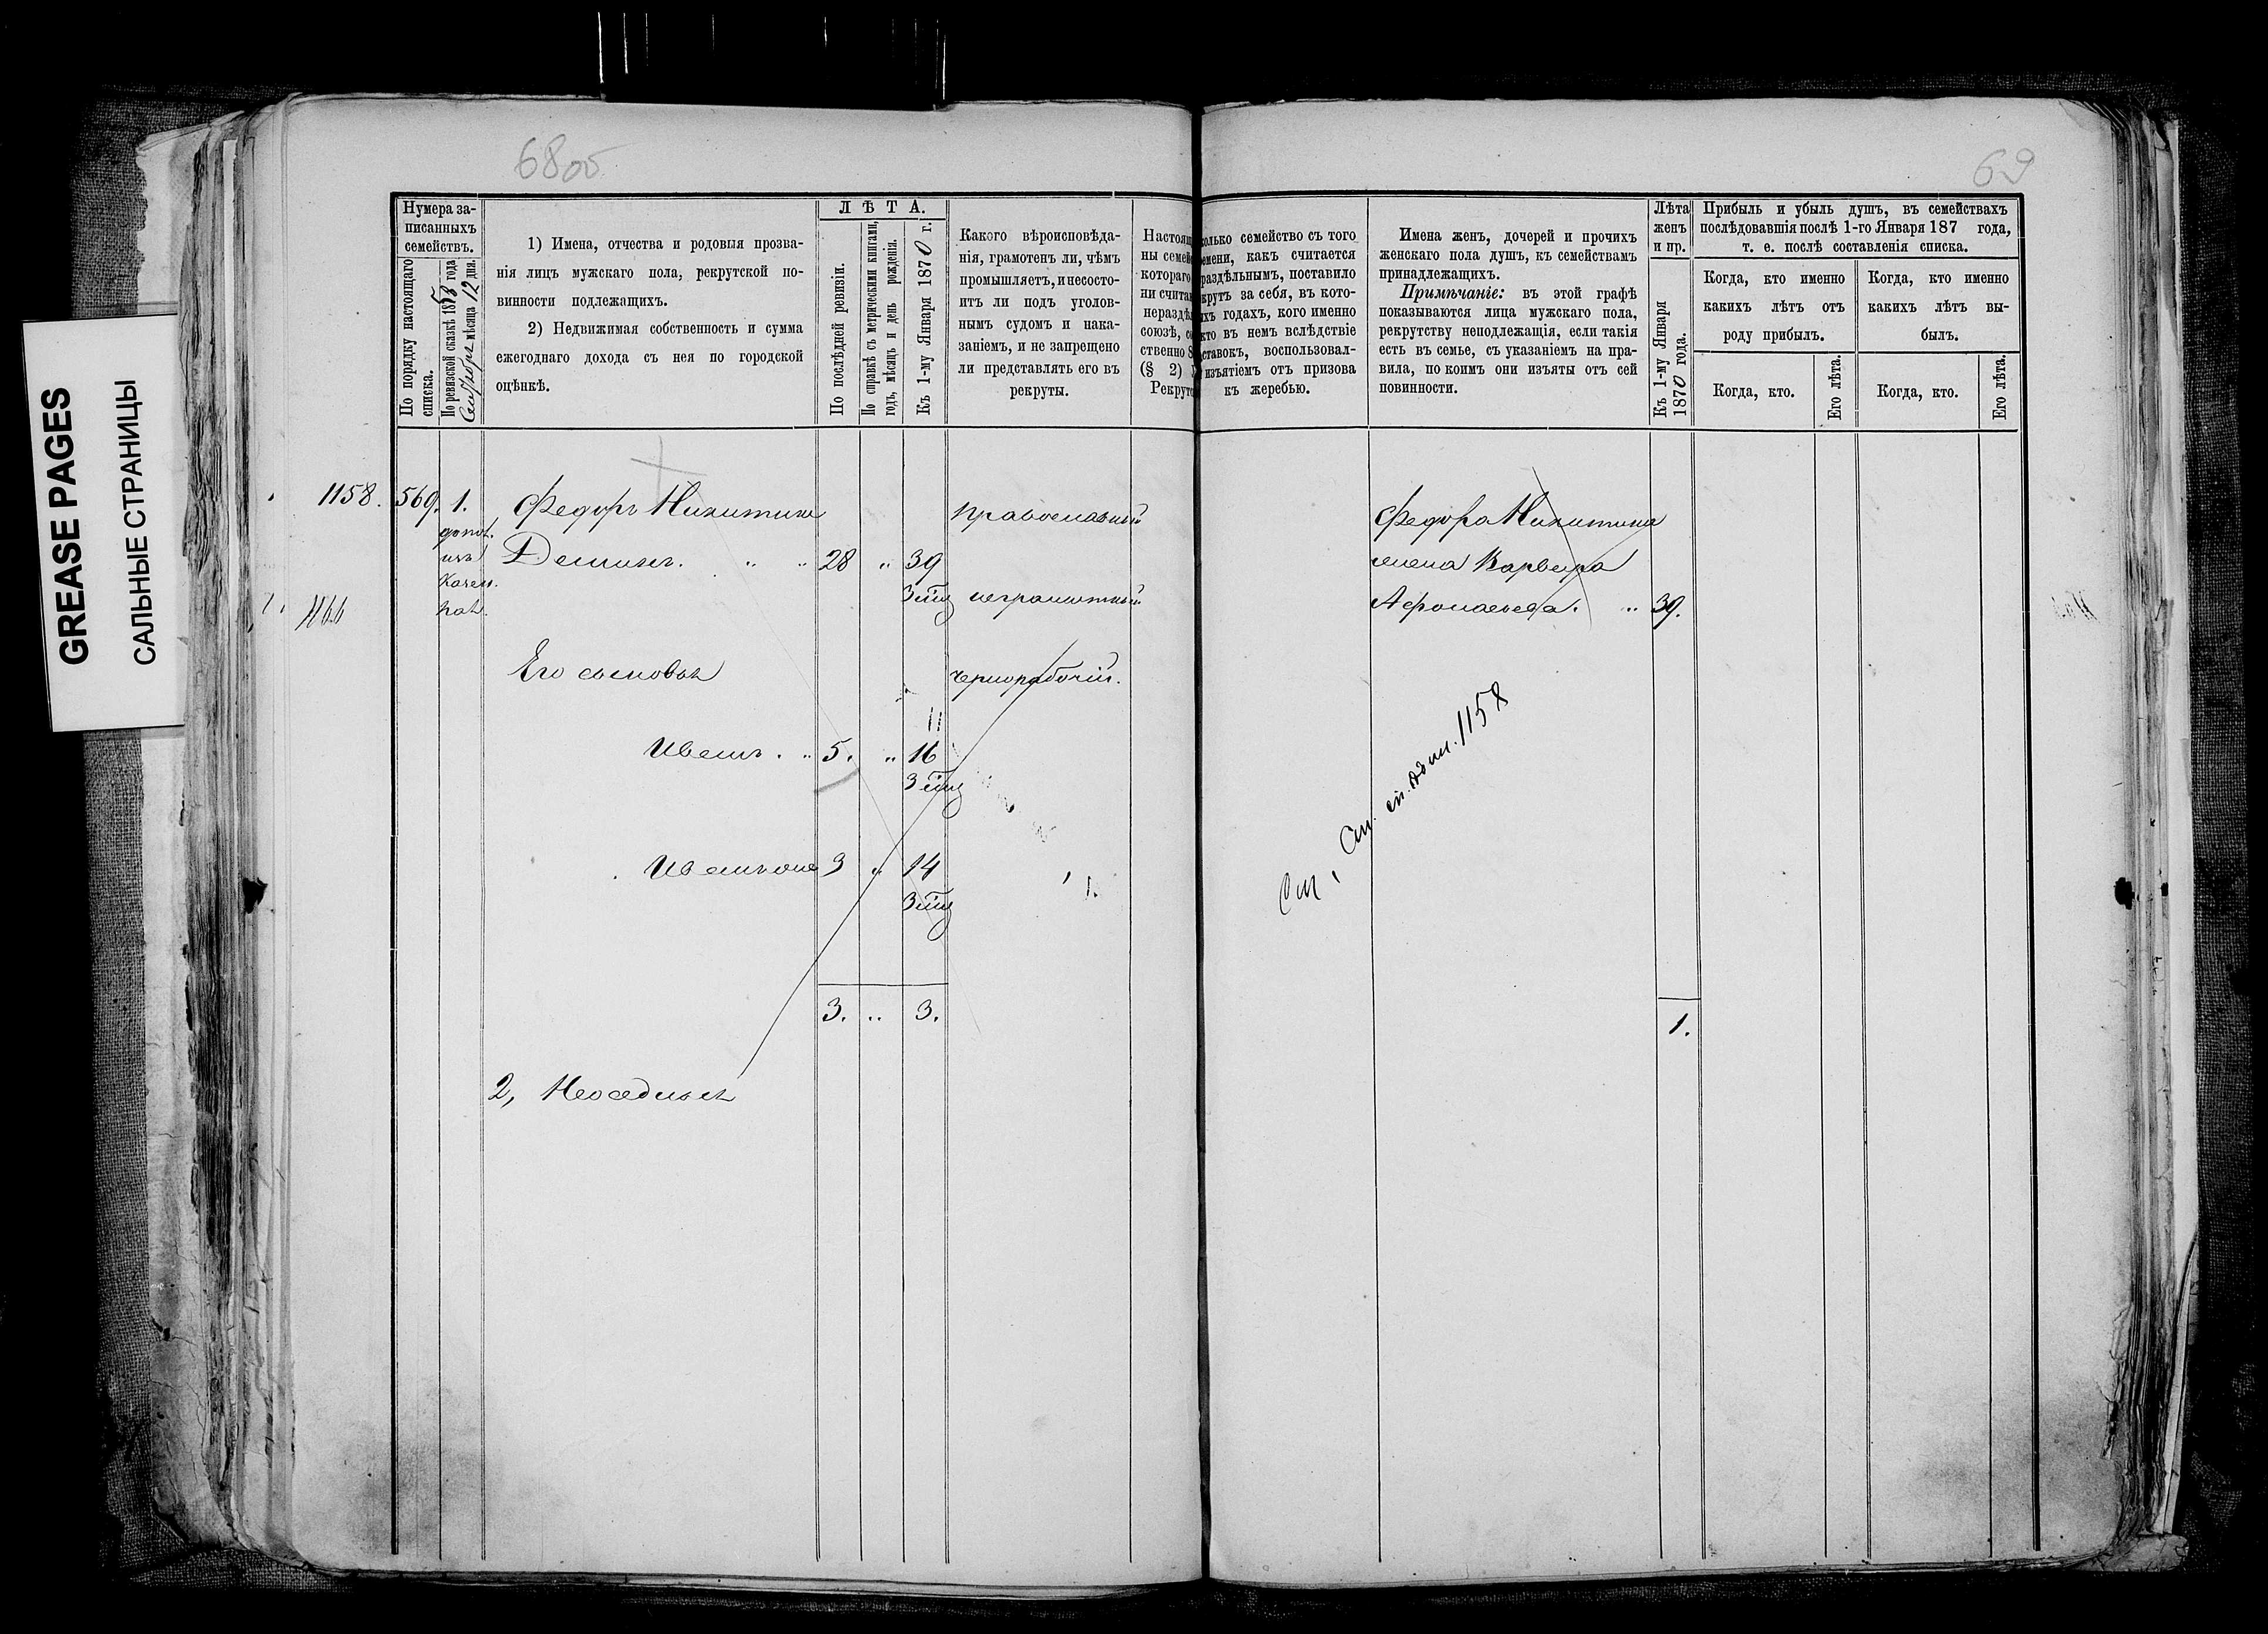 GREASE PAGES
САЛЬНЫЕ СТРАНИЦЫ
68об
69
Нумера за-
писанныхъ
семействъ.
По порядку настоящаго
списка.
По ревизской сказкѣ 1858 года
мѣсяца 12 дня.
1) Имена, отчества и родовыя прозва-
нія лицъ мужскаго пола, рекрутской по-
винности подлежащихъ.
2) Недвижимая собственность и сумма
ежегоднаго дохода съ нея по городской
оцѣнкѣ.
ЛѢТА.
По послѣдней ревизіи.
По справкѣ съ метрическими книгами,
годъ, мѣсяцъ и день рожденія.
Къ 1-му Января 1870 г.
Какого вѣроисповѣда-
нія, грамотенъ ли, чѣмъ
промышляетъ, и несосто-
итъ ли подъ уголов-
нымъ судомъ и нака-
заніемъ, и не запрещено
ли представлять его въ
рекруты.
Настоящ
ны семей
котораго
ни счита
нераздѣ
союзѣ, со
ственно §
(§ 2)
Рекрут
олько семейство съ того
емени, какъ считается
раздѣльнымъ, поставило
крутъ за себя, въ кото-
ихъ годахъ, кого именно
кто въ немъ вслѣдствіе
ставокъ, воспользовал-
изъятіемъ отъ призова
къ жеребью.
Имена женъ, дочерей и прочихъ
женскаго пола душъ, къ семействамъ
принадлежащихъ.
Примѣчаніе: въ этой графѣ
показываются лица мужскаго пола,
рекрутству неподлежащія, если такія
есть въ семье, съ указаніемъ на пра-
вила, по коимъ они изъяты отъ сей
повинности.
Лѣта
женъ
и пр.
Къ 1-му Января
1870 года.
Прибыль и убыль душъ, въ семействахъ
послѣдовавшія послѣ 1-го Января 187 года,
т. е. послѣ составленія списка.
Когда, кто именно
какихъ лѣтъ отъ
роду прибылъ.
Когда, кто именно
какихъ лѣтъ вы-
былъ.
Когда, кто.
Его лѣта.
Когда, кто.
Его лѣта.
1158. 569. 1. Федоръ Никитинъ православный
изъ Деминъ. 28 „ 39
1166 неграмотный
Его сыновья чернорабочій.
11
Иванъ 5. „ 16
3 „ 14
3. „ 3.
2, Неоседлые
Федора Никитина
жена Варвара
Афонасьева. „ 39.
См. сп. 1158
См.
1.